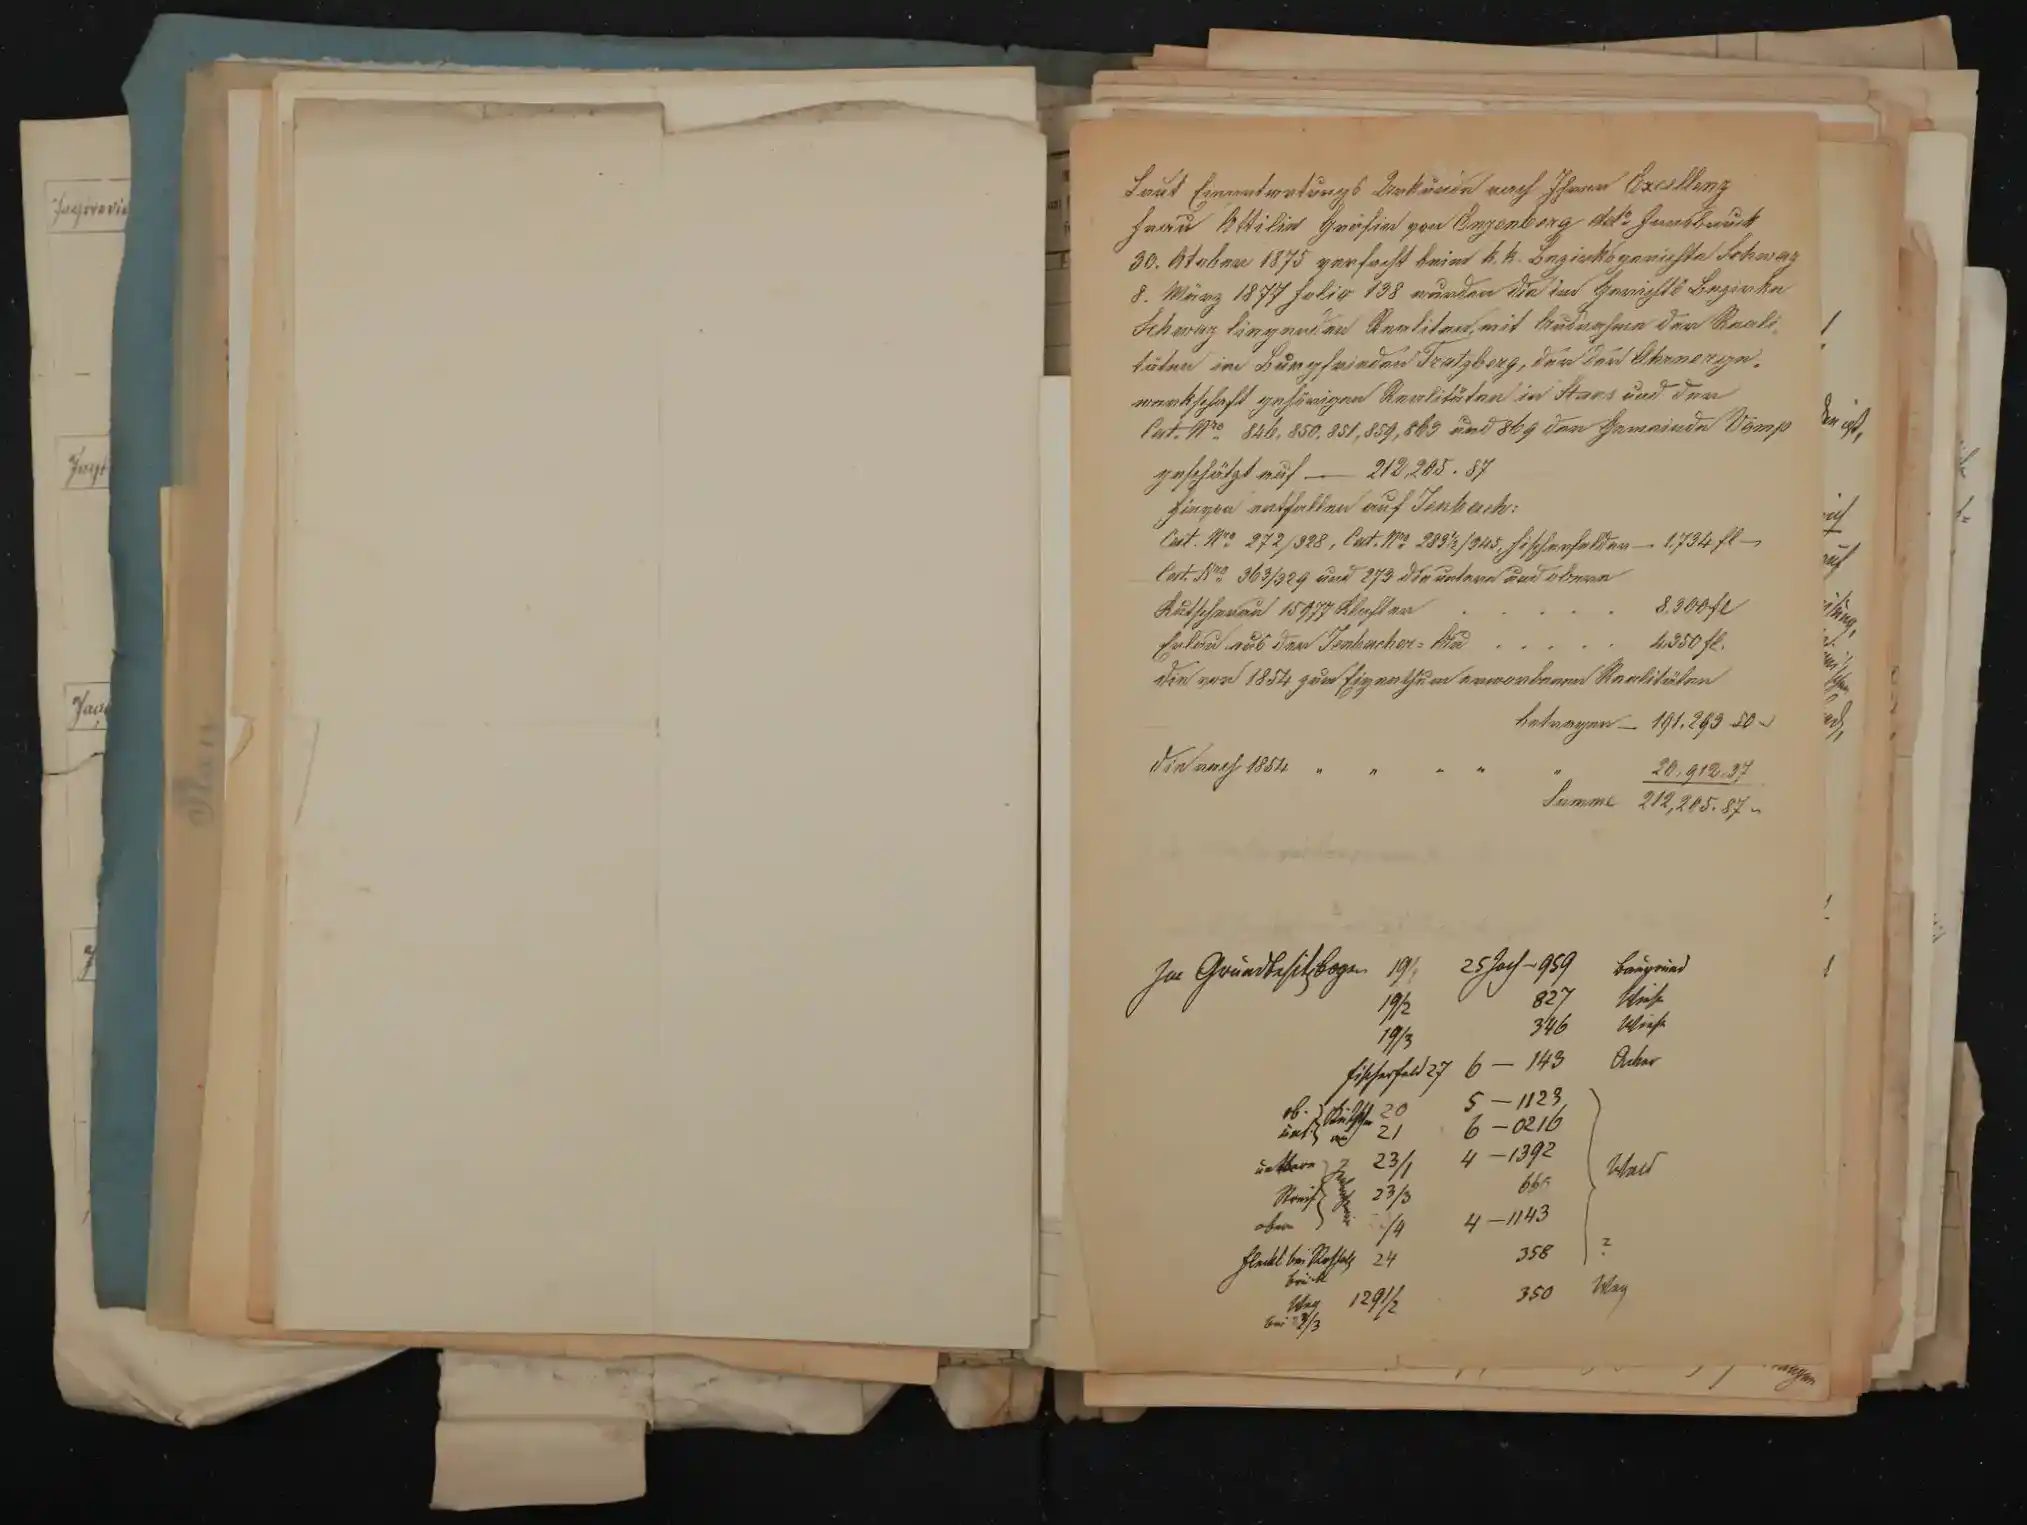 Laut Einantwortungs Urkunde nach Ihrer Excellenz
Frau Ottilie Gräfin von Enzenberg ddto Innsbruck
30. Oktober 1875 verfacht beim k. k. Bezirksgerichte Schwaz
8. März 1877 folio 138 wurden die im Gerichts Bezirke
Schwaz liegenden Realitäten, mit Ausnahme der Reali-
täten im Burgfrieden Tratzberg, der der
gehörigen Realitäten in Stans und der
Cat. Nro 846, 850, 851, 859, 863 und 869 der Gemeinde Vomp
geschätzt auf — 212,205.87
Hievon entfallen auf Jenbach:
Cat. Nro 272/328, Cat. Nro 283½/345, Fischerfelder — 1.734 fl —
Cat. Nro 363/329 und 273 die untere und obere
Rutscherau 15977 Klafter . . . . . 8.300 fl
Erlau aus der Jenbacher= Au . . . . . 4.350 fl.
die vor 1854 zum Eigenthum erworbenen Realitäten
betragen — 191.293 50 -
die nach 1854 " " " " " 20.912.37
Summe 212,205.87 -
Im Grundbesitzbogen 19/1 25 Joch — 959 Baugrund
19/2 827 Wiese
19/3 346 Wiese
Fischerfeld 27 6 — 143 Acker
ob. 20 5 — 1123
unt. au 21 6 — 0216
untere 23/1 4 — 1392 Wald
Streif 23/3
obere /4 4 — 1143
Fleckl bei 24 358 ?
brück
Weg 129 1/2 350 Weg
bei 23/3
Plan